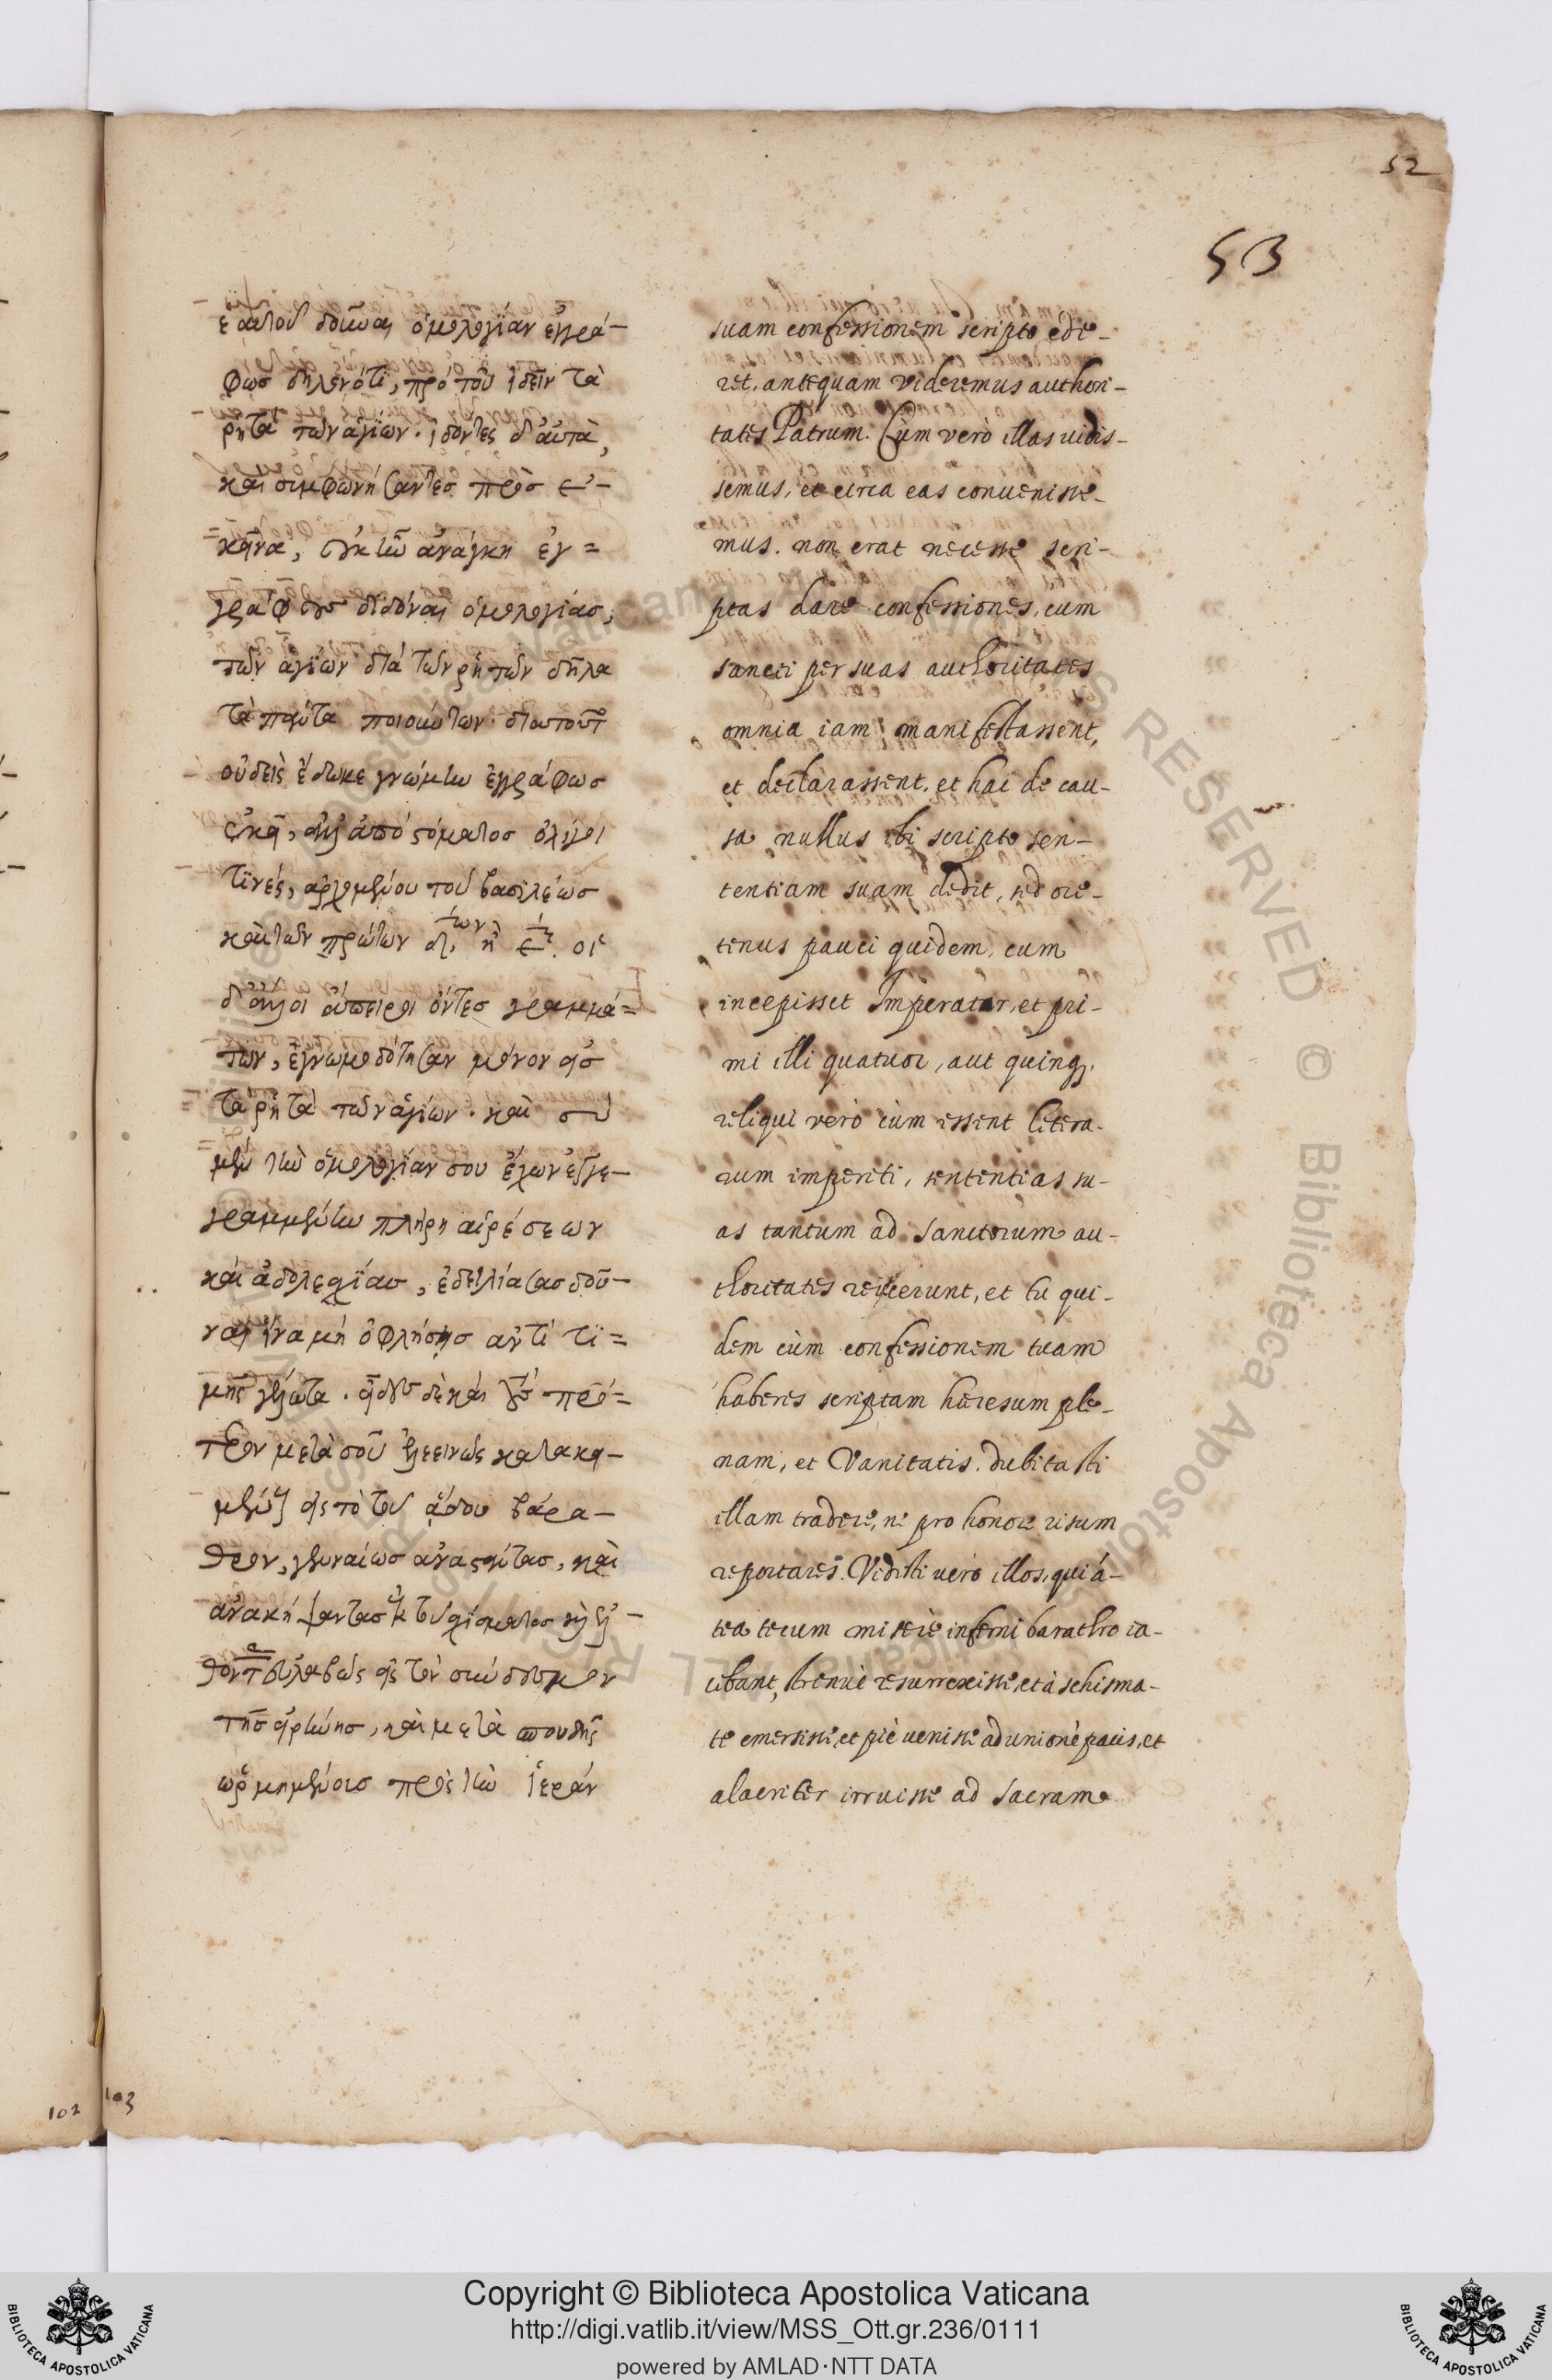 52
53
ἑαυτοῦ δοῦναι ὁμολογίαν ἐγγρά-
φως δηλονότι, πρὸ τοῦ ἰδεῖν τὰ
ῥητὰ τῶν ἁγίων. ἰδόντες δ' αὐτὰ,
καὶ συμφωνήσαντες πρὸς ἐ-
κεῖνα, οὐκ ἦν ἀνάγκη ἐγ=
γράφους διδόναι ὁμολογίας,
τῶν ἁγίων διὰ τῶν ῥητῶν δῆλα
τὰ πάντα ποιούντων. διατοῦτο
οὐδεὶς ἔδωκε γνώμην ἐγγράφως
ἐκεῖ, ἀλλ' ἀπὸ στόματος ὀλίγοι
τινὲς, ἀρξαμένου τοῦ βασιλέως
καὶ τῶν πρώτων δ, ἢ ε. οἱ
δ' ἄλλοι ἄπειροι ὄντες γραμμά=
των, ἐγνωμοδότησαν μόνον εἰς
τὰ ῥητὰ τῶν ἁγίων. καὶ σὺ
μὲν τὴν ὁμολογίαν σου ἔχων ἐγγε-
γραμμένην πλήρη αἱρέσεων
καὶ ἀδολεσχίας, ἐδειλίασας δοῦ-
ναι ἵνα μὴ ὀφλήσῃς ἀντὶ τι=
μῆς γέλωτα. εἶδες δὲ καὶ τοὺς πρό=
τερον μετὰ σοῦ ἐλεεινῶς κατακει-
μένους εἰς τὸ τοῦ ᾅδου βάρα-
θρον, γενναίως ἀναστάντας, καὶ
ἀνακύψαντας ἐκ τοῦ σχίσματος καὶ ἐλ-
θόντας εὐλαβῶς εἰς τὸν σύνδεσμον
τῆς εἰρήνης, καὶ μετὰ σπουδῆς
ὡρμημένους πρὸς τὴν ἱερὰν
suam confessionem scripto ede-
ret, antequam videremus authori-
tates Patrum. Cùm verò illas uidis-
semus, et circa eas conuenisse-
mus. non erat necesse scri-
ptas dare confessiones, cum
sancti per suas authoritates
omnia iam manifestassent,
et declarassent. et hac de cau-
sa nullus ibi scripto sen-
tentiam suam dedit, sed ore-
tenus pauci quidem, cum
incepisset Imperator, et pri-
mi illi quatuor, aut quinq.
reliqui verò cùm essent litera-
rum imperiti, sententias su-
as tantum ad sanctorum au-
thoritates reiecerunt, et tu qui-
dem cùm confessionem tuam
haberes scriptam hæresum ple-
nam, et vanitatis. dubitasti
illam tradere, ne pro honore risum
reportares. Vidisti uero illos, qui á-
tea tecum miserè inferni barathro ia-
cebant, strenuè resurrexisse, et à schisma-
te emersisse, et piè uenisse ad unionẽ pacis, et
alacriter irruisse ad sacram
102
103
Copyright © Biblioteca Apostolica Vaticana
http://digi.vatlib.it/view/MSS_Ott.gr.236/0111
powered by AMLAD·NTT DATA
BIBLIOTECA APOSTOLICA VATICANA
BIBLIOTECA APOSTOLICA VATICANA